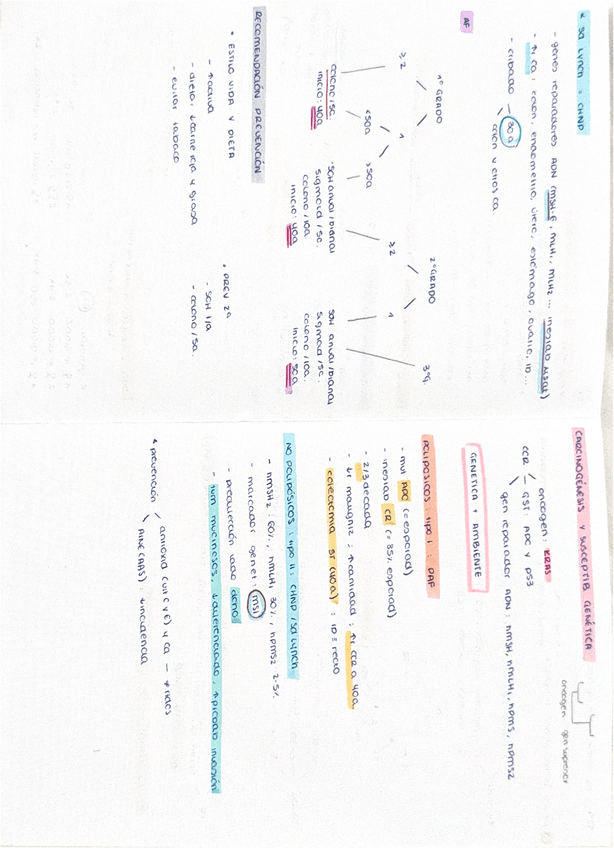 * Sd LYNCH = CHNP
- genes reparadores ADN (MSH-6, MLH1, MLH2 ... inestab MSat)
- ↑r Ca: colon, endometrio, útero, estómago, ovario, ID...
- cribado - 30a
colon y otros ca
AF
1º GRADO
2º GRADO
3ºg.
≥ 2
1
≥ 2
1
<50a
>50a
colono / 5a.
inicio: 40a
· SOH anual/bianual
sigmoid / 5a.
colono / 10a.
inicio: 40a
SOH anual/bianual
sigmoid / 5a.
colono / 10a.
inicio: 50a
RECOMENDACIÓN PREVENCIÓN
* ESTILO VIDA Y DIETA
- ↑activa
- dieta: ↓carne roja y grasa
- evitar tabaco
* PREV 2ª
- SOH 1/a
- colono / 5a.
CARCINOGÉNESIS Y SUSCEPTIB GENÉTICA
oncogen gen supresor
oncogen: KRAS
CCR - GST: APC y P53
gen reparador ADN: hMSH, hMLH1, hPMS, hPMS2
GENÉTICA + AMBIENTE
POLIPÓSICOS: tipo I: PAF
- mut APC (= esporad)
- inestab CR (= 85% esporad)
- 2/3 década
- ↑r maligniz: ↑cantidad: ↑r CCR a 40a
- colectomía St (40a): ID = recto
NO POLIPÓSICOS: tipo II: CHNP / Sd Lynch
- hMSH2: 60%, hMLH1 30%, hPMS2 2.5%
- marcador genet: MSI
- predilección lado dcho
- tum mucinosos, ↓diferenciado, ↑pronto invasión
* prevención